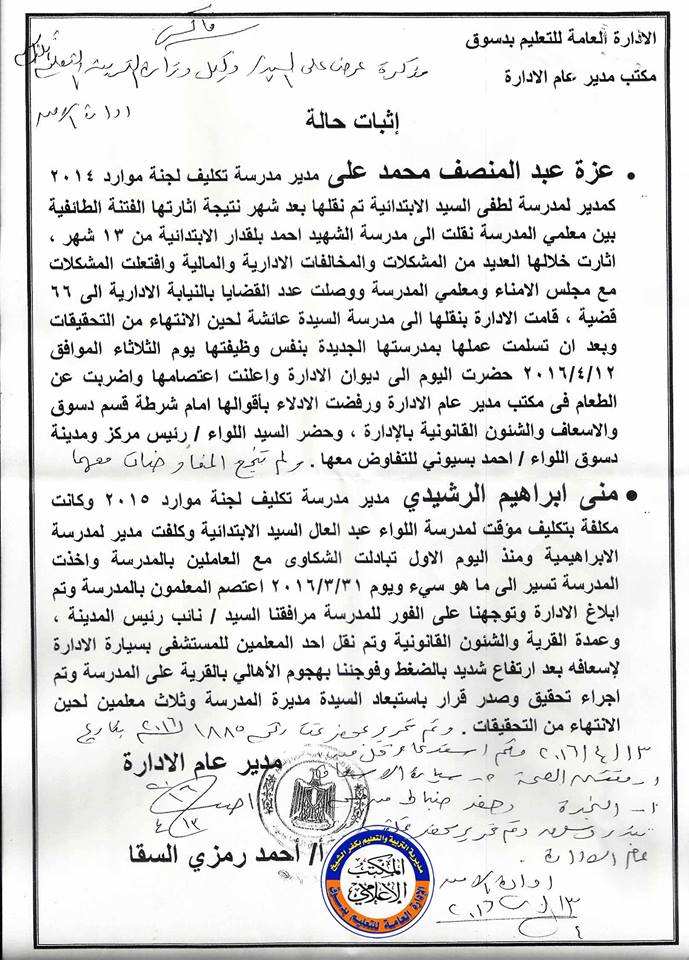 الادارة العامة للتعليم بدسوق
مكتب مدير عام الادارة
فاكس
مذكرة عرض على السيد / وكيل وزارة التربية والتعليم
ادارة الامن
إثبات حالة
• عزة عبد المنصف محمد على مدير مدرسة تكليف لجنة موارد ٢٠١٤
كمدير لمدرسة لطفى السيد الابتدائية تم نقلها بعد شهر نتيجة اثارتها الفتنة الطائفية
بين معلمي المدرسة نقلت الى مدرسة الشهيد احمد بلقدار الابتدائية من ١٣ شهر ،
اثارت خلالها العديد من المشكلات والمخالفات الادارية والمالية وافتعلت المشكلات
مع مجلس الامناء ومعلمي المدرسة ووصلت عدد القضايا بالنيابة الادارية الى ٦٦
قضية ، قامت الادارة بنقلها الى مدرسة السيدة عائشة لحين الانتهاء من التحقيقات
وبعد ان تسلمت عملها بمدرستها الجديدة بنفس وظيفتها يوم الثلاثاء الموافق
٢٠١٦/٤/١٢ حضرت اليوم الى ديوان الادارة واعلنت اعتصامها واضربت عن
الطعام فى مكتب مدير عام الادارة ورفضت الادلاء بأقوالها امام شرطة قسم دسوق
والاسعاف والشئون القانونية بالإدارة ، وحضر السيد اللواء / رئيس مركز ومدينة
دسوق اللواء / احمد بسيوني للتفاوض معها . ولم تنجح المفاوضات معها
• منى ابراهيم الرشيدي مدير مدرسة تكليف لجنة موارد ٢٠١٥ وكانت
مكلفة بتكليف مؤقت لمدرسة اللواء عبد العال السيد الابتدائية وكلفت مدير لمدرسة
الابراهيمية ومنذ اليوم الاول تبادلت الشكاوى مع العاملين بالمدرسة واخذت
المدرسة تسير الى ما هو سيء ويوم ٢٠١٦/٣/٣١ اعتصم المعلمون بالمدرسة وتم
ابلاغ الادارة وتوجهنا على الفور للمدرسة مرافقنا السيد / نائب رئيس المدينة ،
وعمدة القرية والشئون القانونية وتم نقل احد المعلمين للمستشفى بسيارة الادارة
لإسعافه بعد ارتفاع شديد بالضغط وفوجئنا بهجوم الأهالي بالقرية على المدرسة وتم
اجراء تحقيق وصدر قرار باستبعاد السيدة مديرة المدرسة وثلاث معلمين لحين
الانتهاء من التحقيقات . وتم تحرير محضر رقم ١٨٨٥ لسنة ٢٠١٦ بتاريخ
٢٠١٦/٤/١٣
مدير عام الادارة
النجدة وحضر ضباط
وتم تحرير محضر
عام الادارة .
أ/ أحمد رمزي السقا
ادارة الامن
مديرية التربية والتعليم بكفر الشيخ
المكتب
الإعلامي
الادارة العامة للتعليم بدسوق